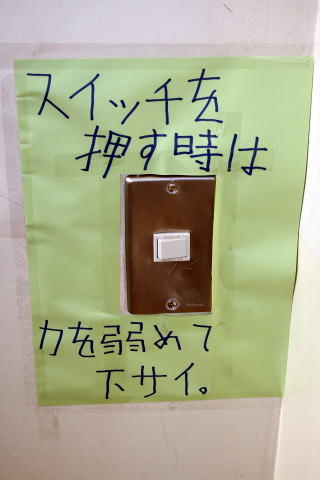 スイッチを
押す時は
National
力を弱めて
下サイ。